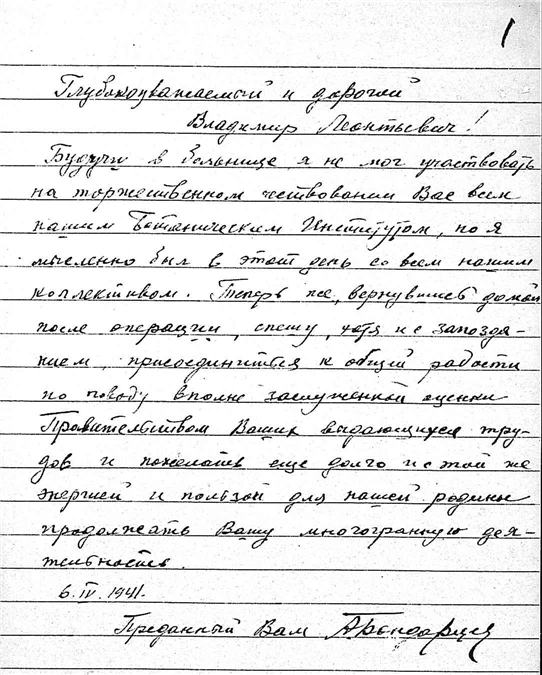 1
Глубокоуважаемый и дорогой
Владимир Леонтьевич!
Будучи в больнице я не мог участвовать
на торжественном чествовании Вас всем
нашим Ботаническим Институтом, но я
мысленно был в этот день со всем нашим
коллективом. Теперь же, вернувшись домой
после операции, спешу, хотя и с запозда-
нием, присоединиться к общей радости
по поводу вполне заслуженной оценки
Правительством Ваших выдающихся тру-
дов и пожелать еще долго и с той же
энергией и пользой для нашей родины
продолжать Вашу многогранную дея-
тельность.
6.IV.1941.
Преданный Вам АБондарцев